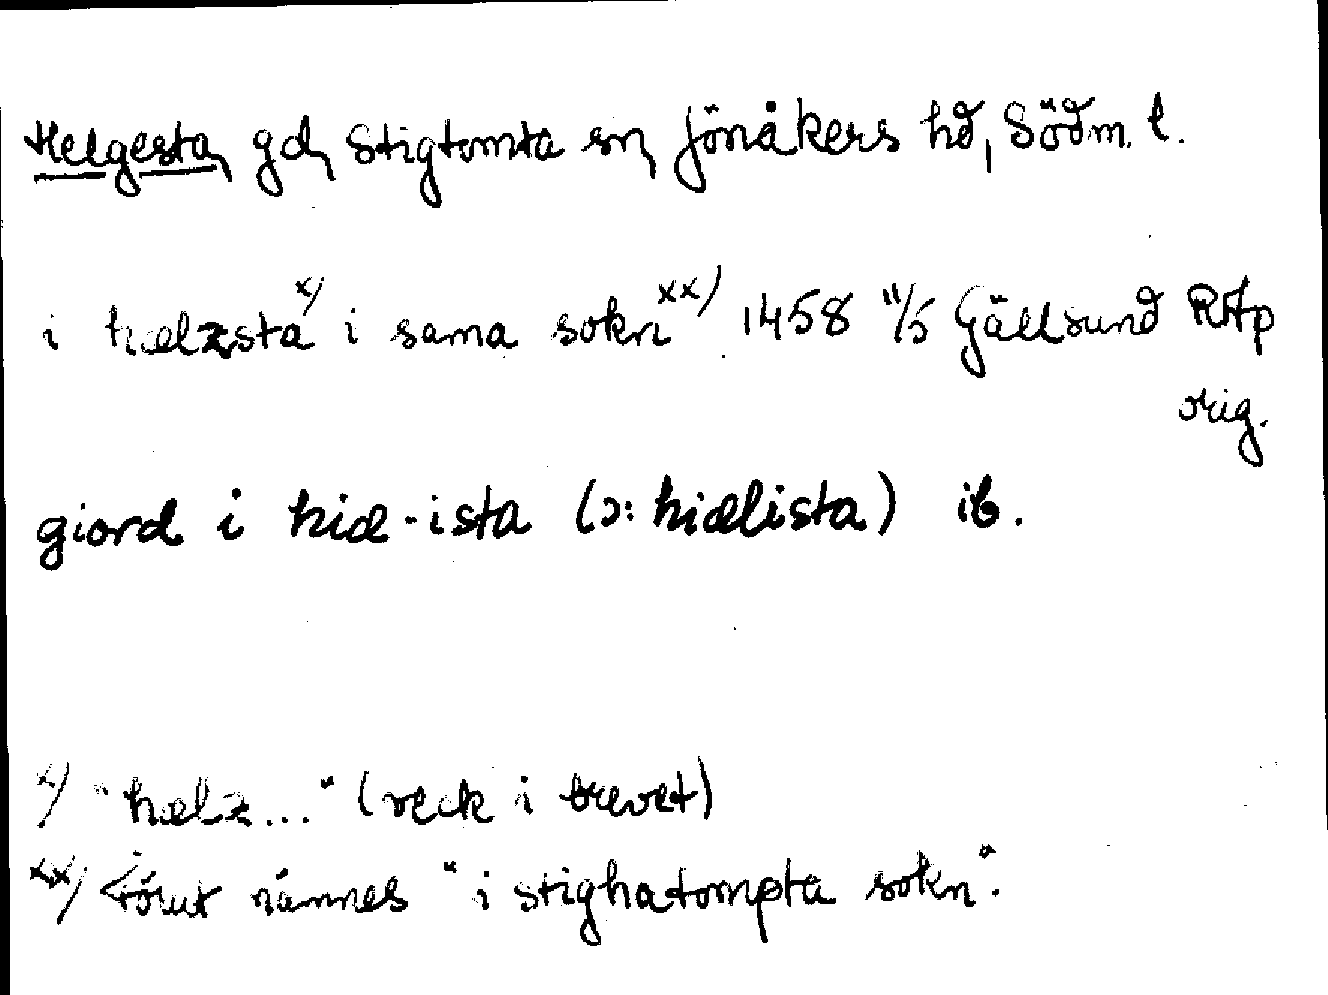 Helgesta, gd, Stigtomta sn, Jönåkers hd, Södm. l.
i hælzsta x) i sama sokn xx) 1458 11/5 Gällsund RAp
orig.
giord i hiæ-ista (ɔ: hiælista) ib.
x) "hælz..." (veck i brevet)
xx) Förut nämnes "i stighatompta sokn".